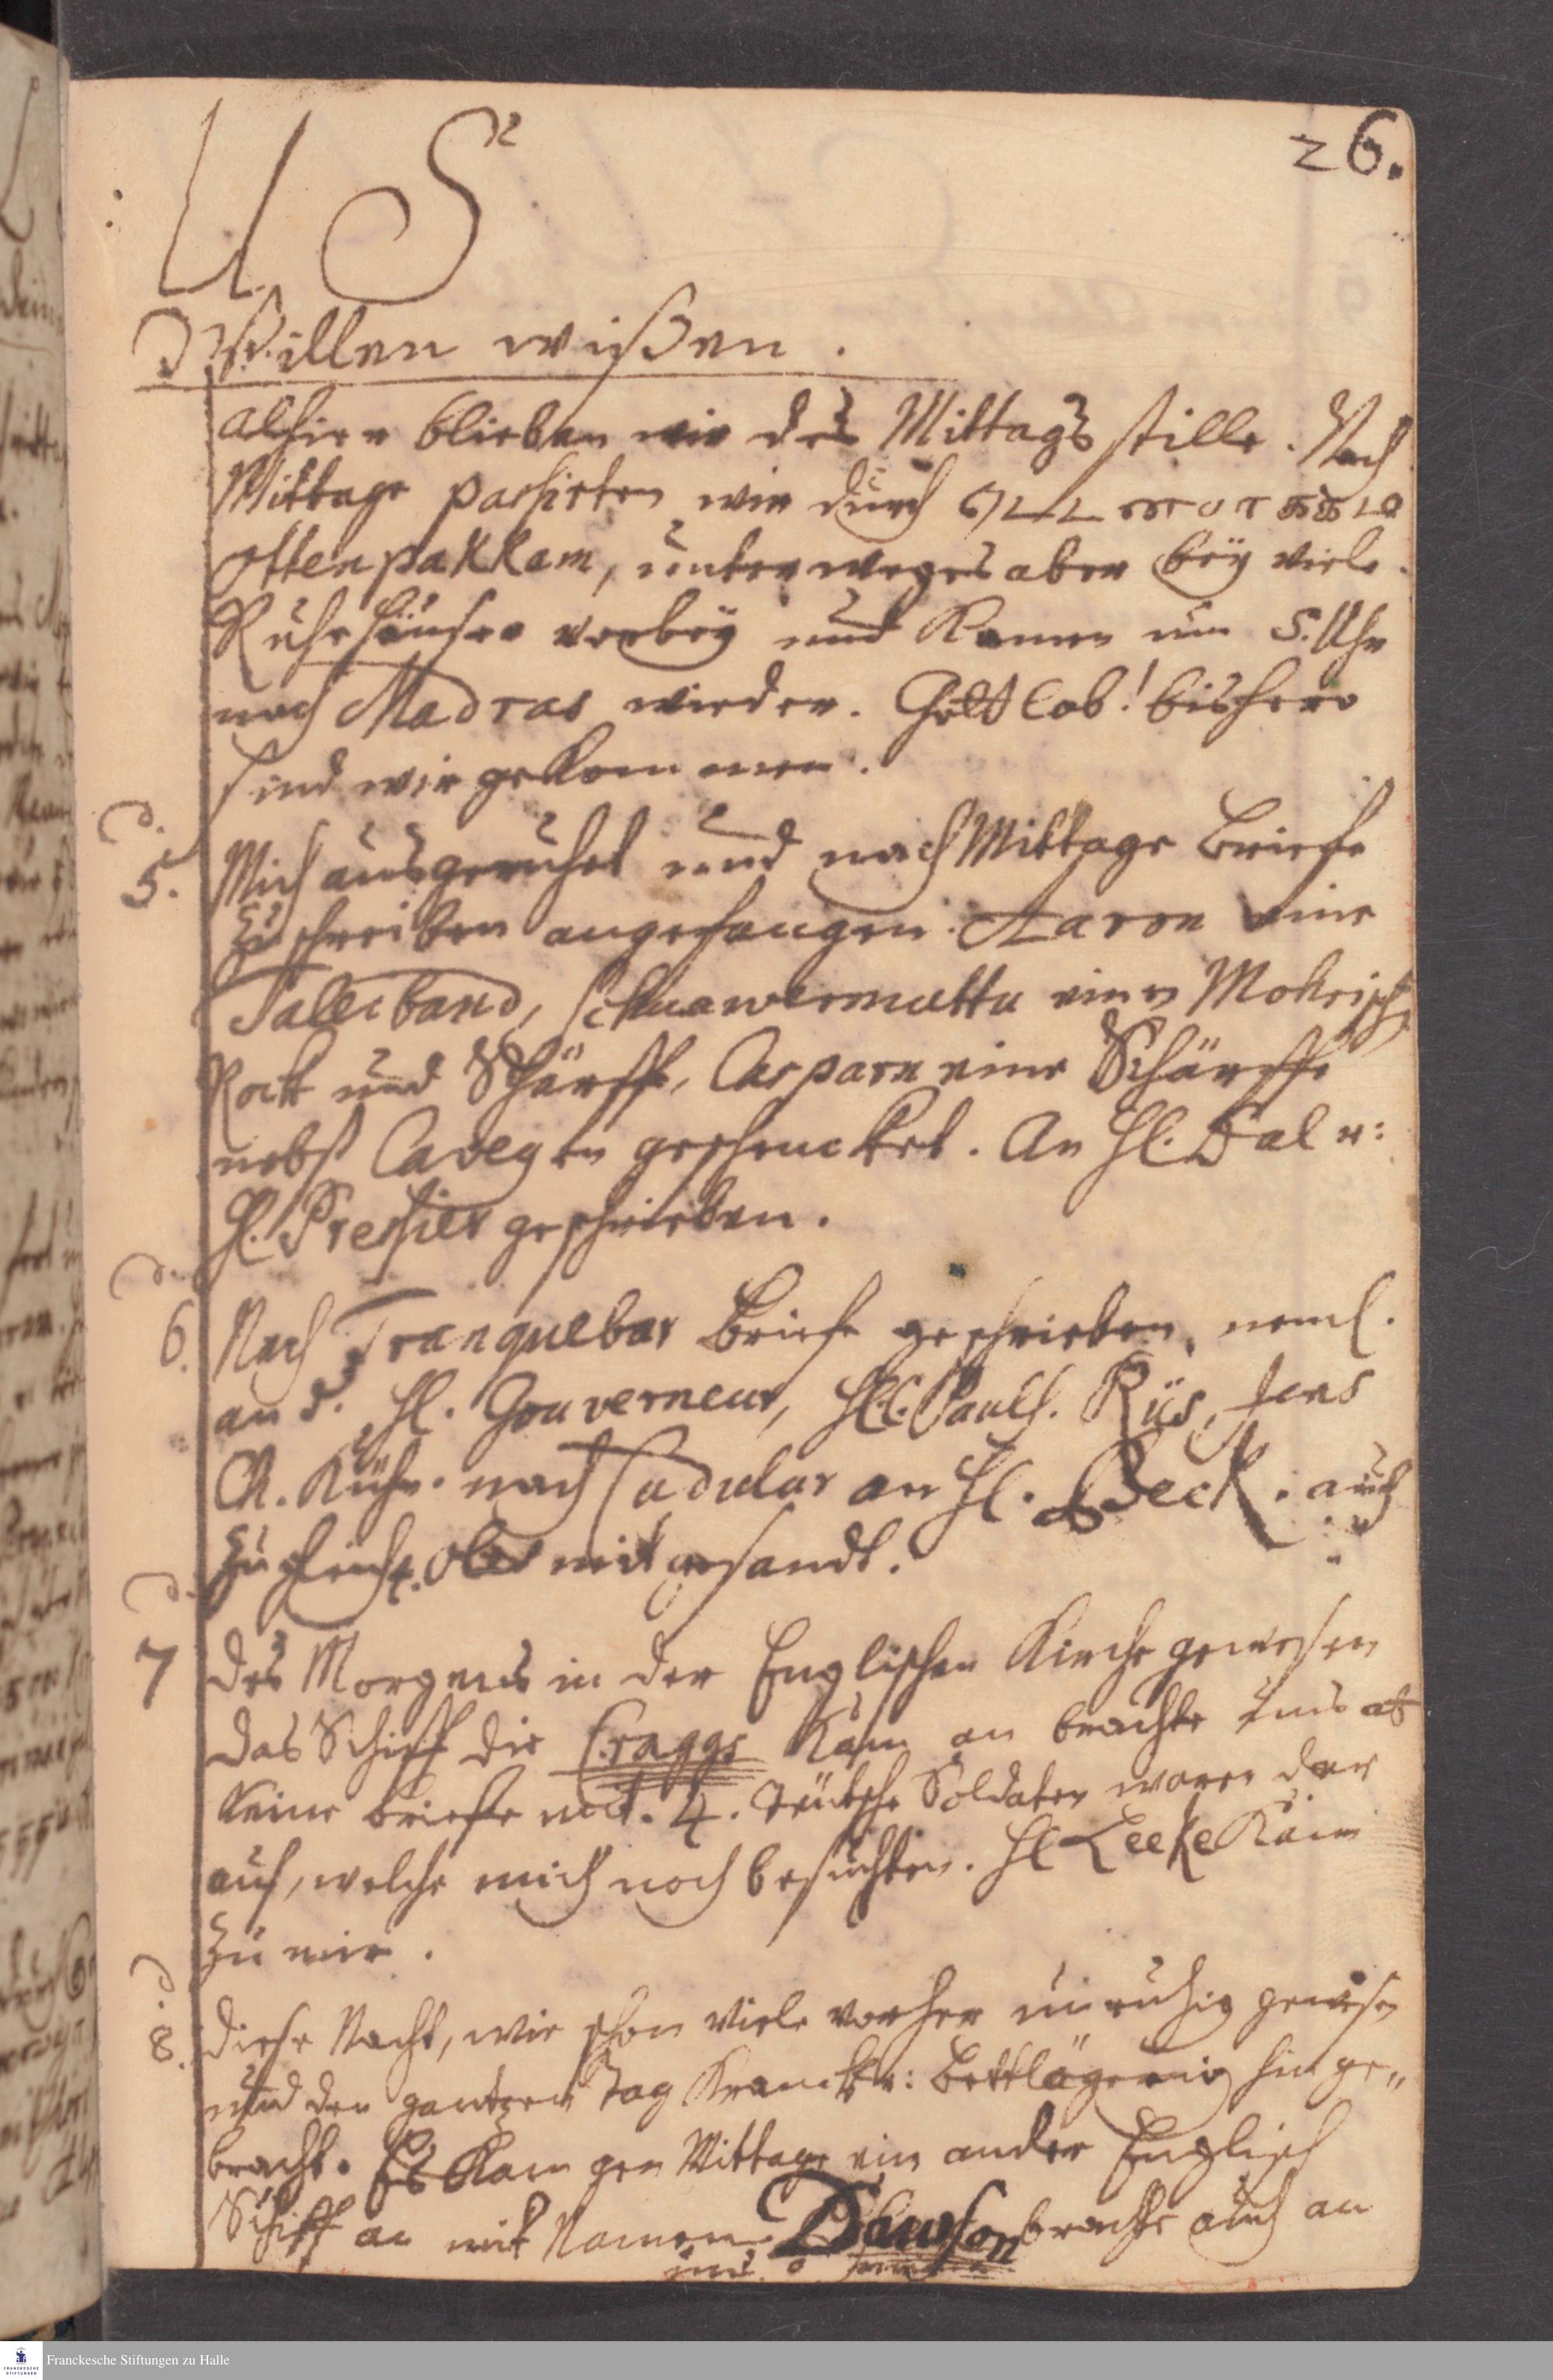 26.
U S
Willen wißen.
alhier blieben wir des Mittags stille. Nach
Mittage passirten wir durch
Ottenpakkam, unterweges aber bey viele
Ruhehäuser vorbey und kamen um 5. Uhr
nach Madras wieder. Gott lob! bishero
sind wir gekommen.
d.
5. Mich ausgeruhet und nach Mittage Briefe
zu schreiben angefangen. Aaron eine
Taleiband, Schawermuttu einen Mohrisch
Rock und Schärffe, Casparn eine Schärffe
nebst geschencket. An H. Dal u:
H. Pressier geschrieben.
d.
6. Nach Tranquebar Briefe geschrieben, neml.
an d. H. Gouverneur, Jens
nach Cudulur an H. Beck. auch
zugleich mit gesandt.
d.
7 des Morgens in der Englischen Kirche gewesen
das Schiff die Craggs kam an brachte uns ab
keine briefe mit. 4. Teutsche Soldaten waren dar
auf, welche mich noch besuchten. H Leeke kam
zu mir.
d.
8. diese Nacht, wie schon viele vorher unruhig gewesen
und den gantzen Tag Kranck u: Bettlägerig hinge„
bracht. Es kam gen Mittage ein ander Englisch
Schiff an mit Namen Dawson brachte auch an
uns
Franckesche Stiftungen zu Halle